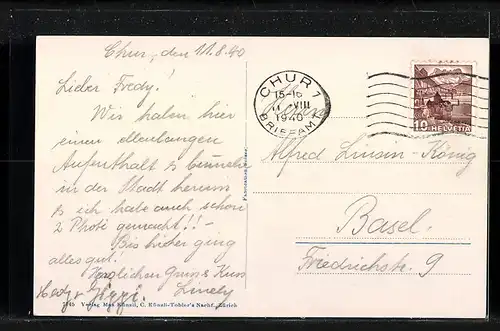 Chur, den 11.8.40
Lieber Fredy!
Wir haben hier
einen
Aufenthalt &
in der Stadt herum
& ich habe auch schon
2 Photi gemacht!! -
Bis hieher ging
alles gut!
Herzlichen Gruss & Kuss
Hedy
CHUR 1
15-16
11.VIII
1940
BRIEFAMT
10 HELVETIA
Herrn
Alfred Linsin-König
Basel.
Friedrichstr. 9
Verlag Max Künzli, C. Künzli-Tobler's Nachf., Zürich